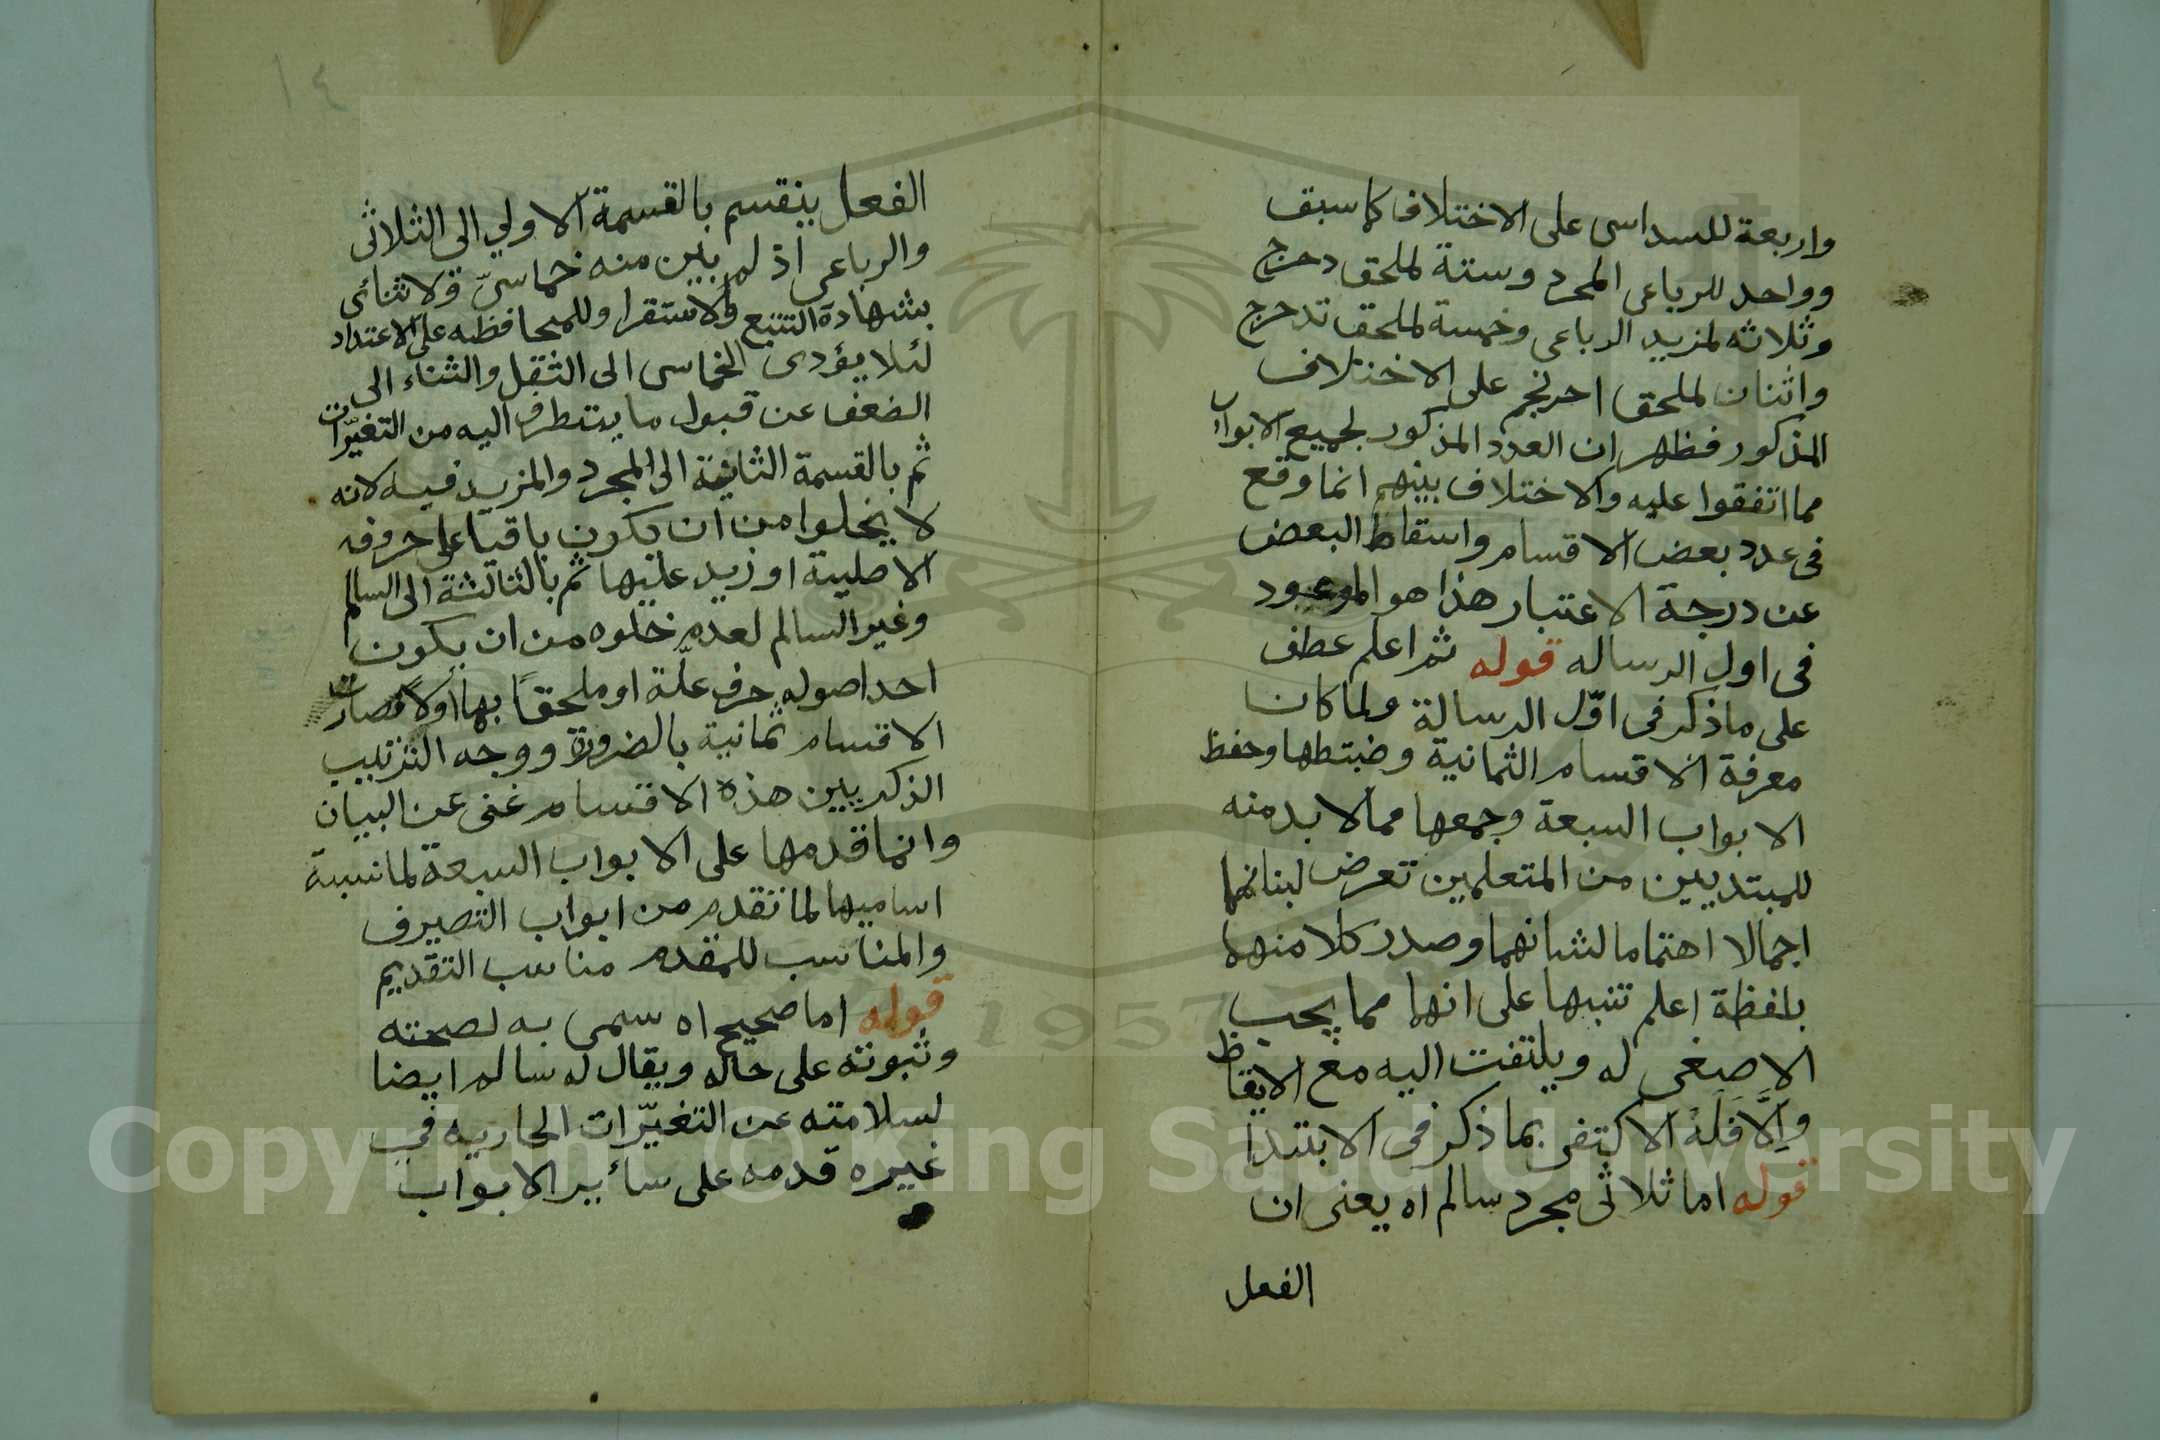 واربعة للسداسى على الاختلاف كما سبق
وواحد للرباعى المجرد وستة لملحق دحرج
وثلاثه لمزيد الرباعى وخمسة لملحق تدحرج
واثنان لملحق احرنجم على الاختلاف
المذكور فظهر ان العدد المذكور لجميع الابواب
مما اتفقوا عليه والاختلاف بينهم انما وقع
فى عدد بعض الاقسام واسقاط البعض
عن درجة الاعتبار هذا هو الموعود
فى اول الرساله قوله ثم اعلم عطف
على ما ذكر فى اوّل الرسالة ولما كان
معرفة الاقسام الثمانية وضبطها وحفظ
الابواب السبعة وجمعها مما لا بد منه
للمبتديين من المتعلمين تعرض لبنائها
اجمالا اهتماما لشانهما وصدر كلا منهما
بلفظة اعلم تنبها على انها مما يجب
الاصغى له ويلتفت اليه مع الايقاظ
والّا فله الاكتفى بما ذكر فى الابتدا
قوله اما ثلاثى مجرد سالم اه يعنى ان
الفعل
١٤
الفعل ينقسم بالقسمة الاولي الى الثلاثى
والرباعى اذ لم يبين منه خماسىّ ولا ثنائى
بشهادة التتبع والاستقرا وللمحافظه على الاعتداد
لئلا يؤدى الخماسى الى الثقل والثناء الى
الضعف عن قبول ما يتطرق اليه من التغيّرات
ثم بالقسمة الثانية الى المجرد والمزيد فيه لانه
لا يخلوا من ان يكون باقيا على حروفه
الاصلية او زيد عليها ثم بالثالثة الى السالم
وغير السالم لعدم خلوه من ان يكون
احد اصوله حرف علّة او ملحقا بها اولا فصارت
الاقسام ثمانية بالضرورة ووجه الترتيب
الذكر بين هذه الاقسام غنى عن البيان
وانما قدمها على الابواب السبعة لمانسبة
اساميها لما تقدم من ابواب التصيرف
والمناسب للمقدم مناسب التقديم
قوله اما صحيح اه سمى به لصحته
وثبوته على حاله ويقال له سالم ايضا
لسلامته عن التغيّرات الجاريه في
غيره قدمه على سائير الابواب
1957
Copyright © King Saud University